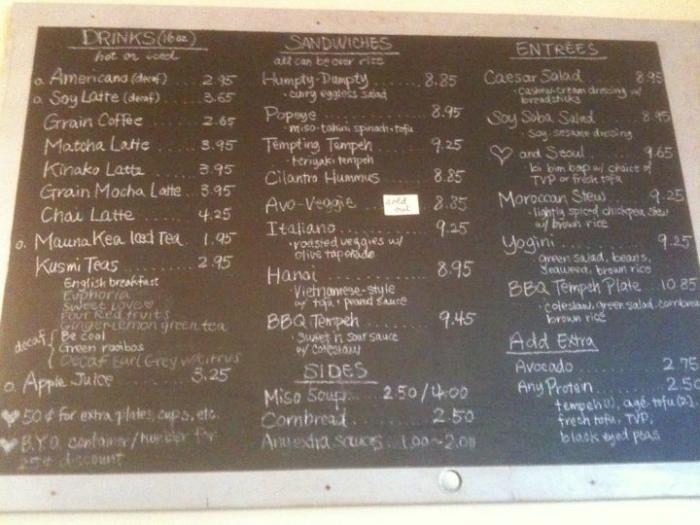 DRINKS (16oz)
hot or iced
o. Americano (decaf) ..... 2.95
o. Soy Latte (decaf) ..... 3.65
Grain Coffee ..... 2.65
Matcha Latte ..... 3.95
Kinako Latte ..... 3.95
Grain Mocha Latte .. 3.95
Chai Latte ..... 4.25
o. Mauna Kea Iced Tea . 1.95
Kusmi Teas ..... 2.95
English breakfast
Euphoria
Sweet Love
Four Red fruits
Ginger lemon green tea
decaf { Be cool
Green rooibos
Decaf Earl Grey w/citrus
o. Apple Juice ..... 3.25
♥ 50¢ for extra plates, cups, etc.
♥ B.Y.O. container/tumbler for
25¢ discount
SANDWICHES
all can be over rice
Humpty-Dumpty ..... 8.85
• curry eggless salad
Popeye ..... 8.95
• miso-tahini spinach + tofu
Tempting Tempeh .. 9.25
• teriyaki tempeh
Cilantro Hummus ... 8.85
Avo-Veggie ... sold out .. 8.85
Italiano ..... 9.25
• roasted veggies w/
olive taponade
Hanoi ..... 8.95
Vietnamese-style
w/ tofu + peanut sauce
BBQ Tempeh ..... 9.45
• sweet n sour sauce
w/ coleslaw
SIDES
Miso Soup .... 2.50/4.00
Cornbread ..... 2.50
Any extra sauces . 1.00~2.00
ENTRÉES
Caesar Salad ..... 8.95
• Cashew-cream dressing w/
breadsticks
Soy Soba Salad ... 8.95
• Soy-sesame dressing
♡ and Seoul ..... 9.65
bi bim bap w/ choice of
TVP or fresh tofu
Moroccan Stew ... 9.25
• lightly spiced chickpea stew
w/ brown rice
Yogini ..... 9.25
green salad, beans,
seaweed, brown rice
BBQ Tempeh Plate .. 10.85
• coleslaw, green salad, cornbread
brown rice
Add Extra
Avocado ..... 2.75
Any Protein ..... 2.5
tempeh (1), agé tofu (2),
fresh tofu, TVP,
black eyed peas